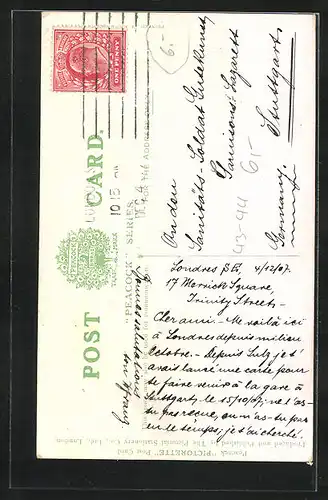 POST CARD.
"PEACOCK" SERIES
TRADE MARK
FOR THE ADDRESS
ONE PENNY
LONDON
10.15
DEC 4
6.-
An den
Sanitäts-Soldat Gutekunst
Garnisons-Lazarett
Stuttgart.
Germany.
43-44 6/-
Londres S.E. 4/12/07.
17 Merrick Square,
Trinity Street-
Cher ami - Me voilà ici
à Londres depuis milieu
Octobre. - Depuis Sulz je t'
avais lancé une carte pour
te faire venir à la gare à
Stuttgart, le 15/10/07, ne l'as-
tu pas reçue, ou n'as-tu pas
eu le temps, je t'ai cherché.
Peacock "PICTORETTE" Post Card
Produced and Published by The Pictorial Stationery Co., Ltd., London